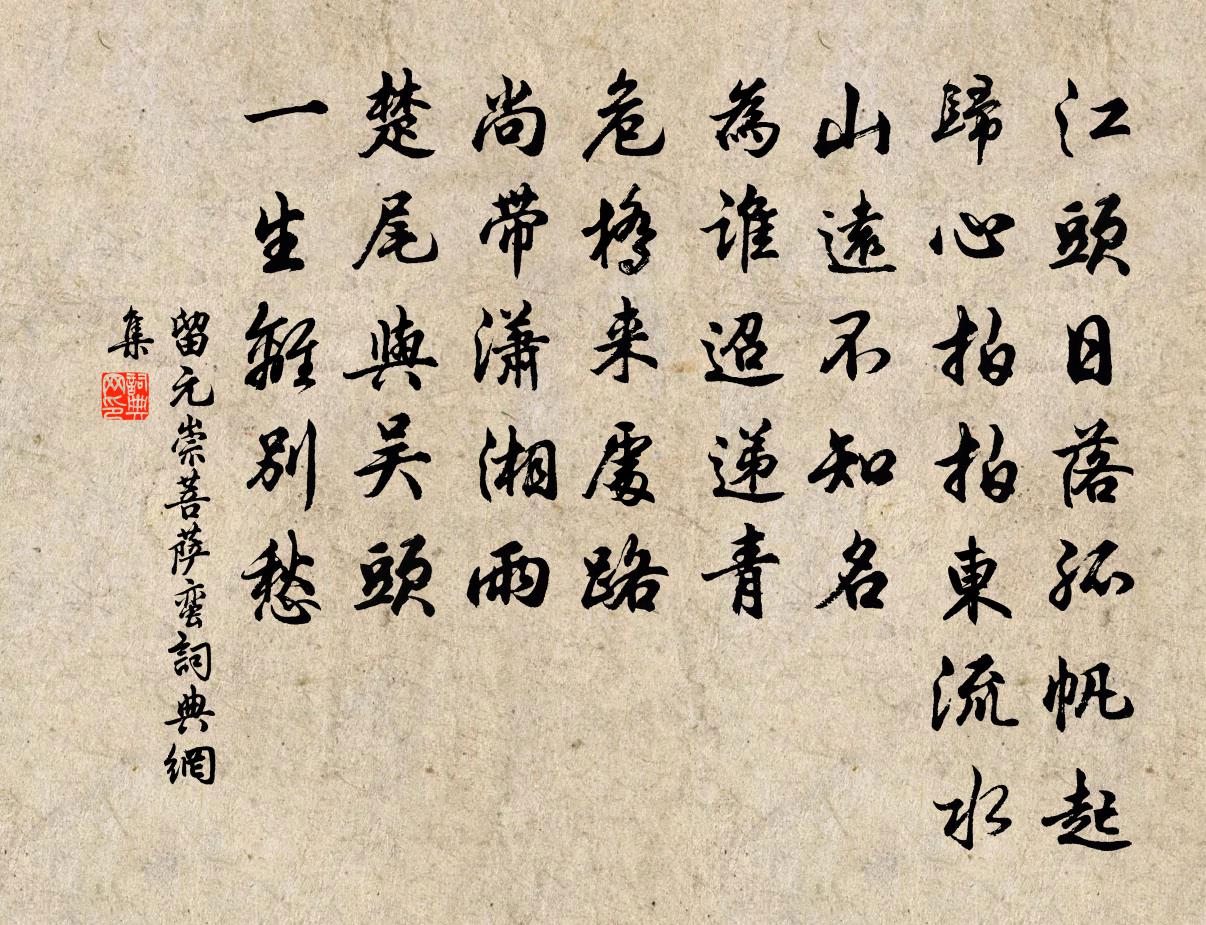 江頭日落孤帆起
歸心拍拍東流水
山遠不知名
為誰迢遞青
危橋来處路
尚带瀟湘雨
楚尾與吴頭
一生離别愁
留元崇菩萨蛮詞典網
集
詞典
网印